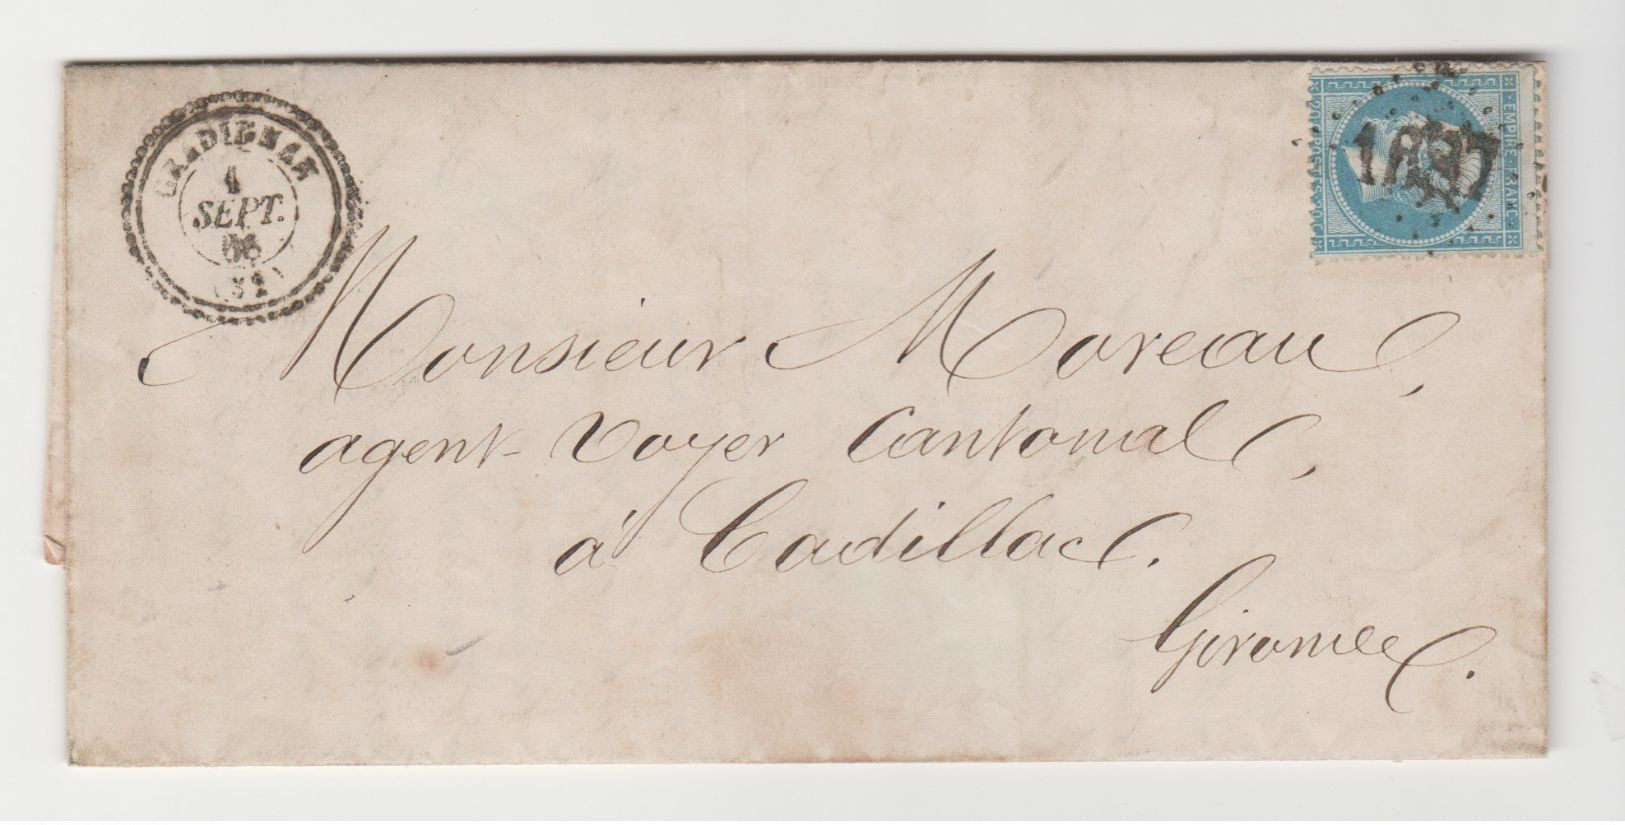 GRADIGNAN
1
SEPT.
66
(32)
EMPIRE FRANC
20 C POSTES 20 C
Monsieur Moreau,
agent-voyer Cantonal,
à Cadillac.
Gironde.